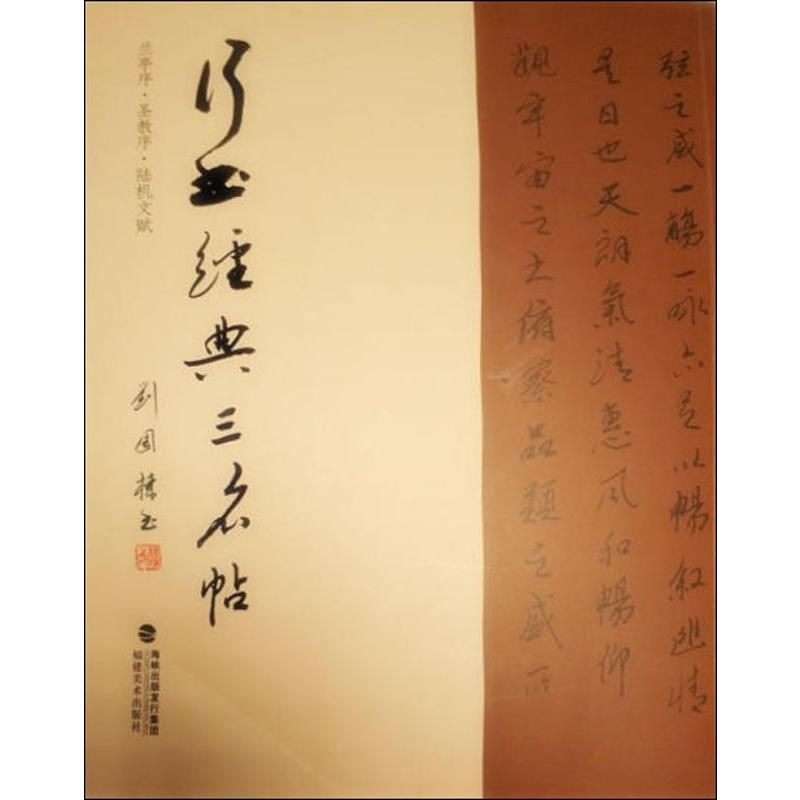 弦之盛一觴一咏亦足以暢叙幽情
是日也天朗氣清惠風和暢仰
觀宇宙之大俯察品類之盛所
行书經典三名帖
兰亭序·圣教序·陆机文赋
劉国棟书
海峡出版发行集团
福建美术出版社